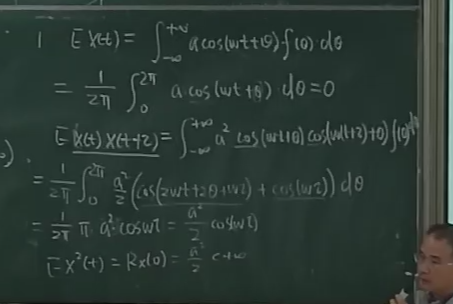 1 E X(t) = ∫_{-∞}^{+∞} a cos(wt+θ) f(θ) dθ
= 1/2π ∫_0^{2π} a cos(wt+θ) dθ = 0
E X(t) X(t+τ) = ∫_{-∞}^{+∞} a² cos(wt+θ) cos(w(t+τ)+θ) f(θ) dθ
= 1/2π ∫_0^{2π} a²/2 (cos(2wt+2θ+wτ) + cos(wτ)) dθ
= 1/2π π a² cos wτ = a²/2 cos(wτ)
E X²(t) = Rx(0) = a²/2 < +∞